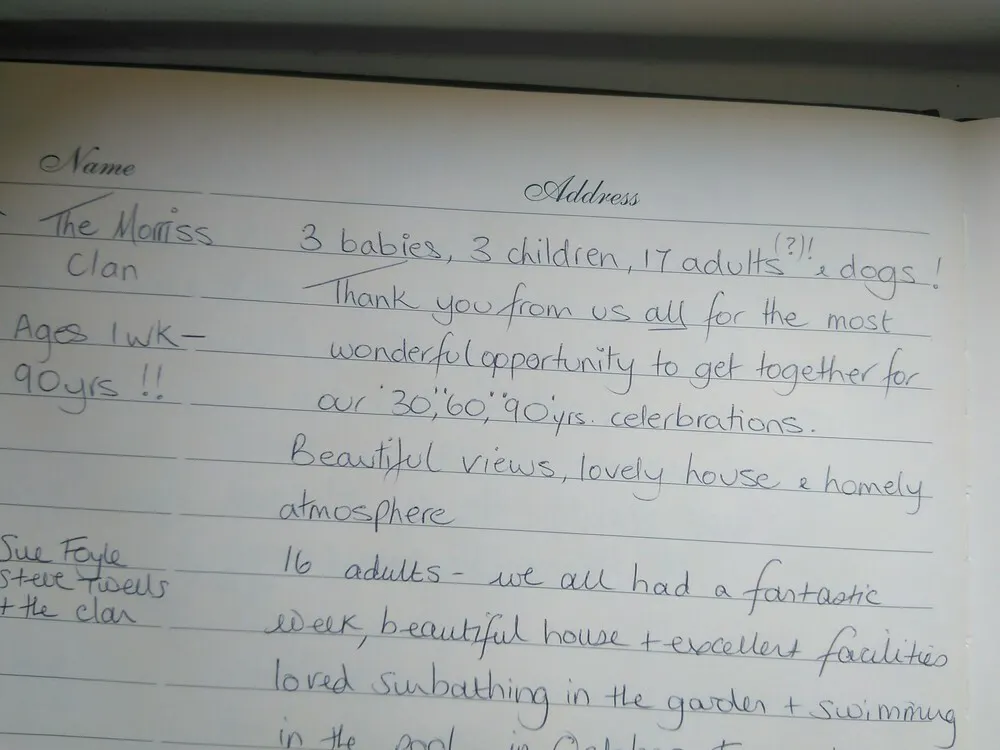 Name
Address
The Morriss
Clan
Ages 1wk-
90yrs !!
3 babies, 3 children, 17 adults(?)! & dogs!
Thank you from us all for the most
wonderful opportunity to get together for
our '30', '60', '90' yrs. celerbrations.
Beautiful views, lovely house & homely
atmosphere
Sue Foyle
Steve Twells
+ the clan
16 adults - we all had a fantastic
week, beautiful house + excellent facilities
loved sunbathing in the garden + swimming
in the pool in